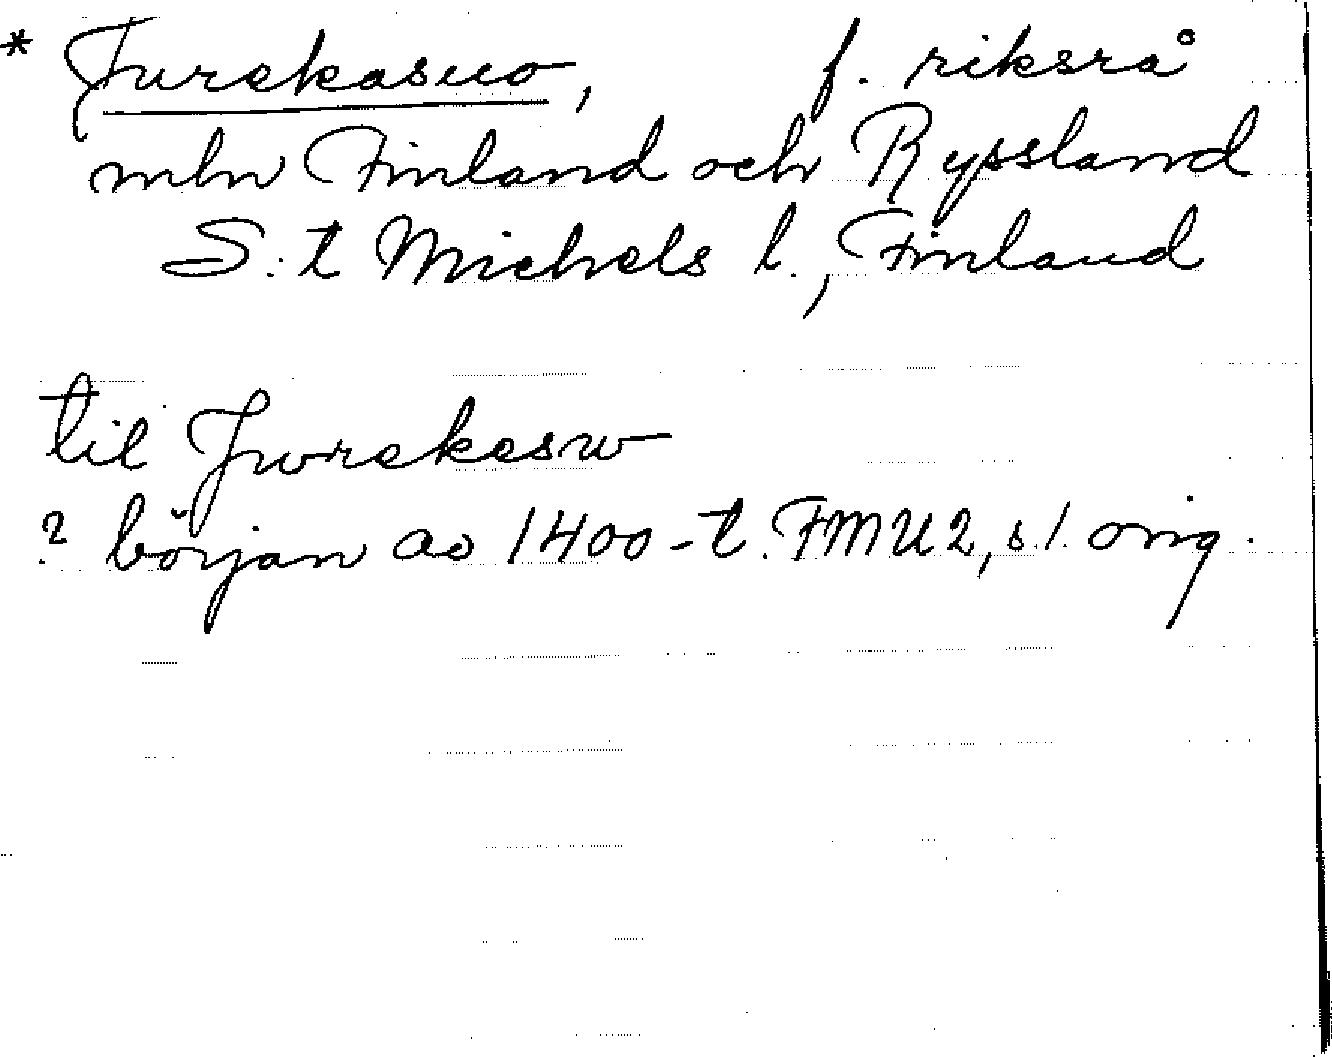 * Jurekasuo, f. riksrå
mln Finland och Ryssland
S:t Michels l., Finland
til Jwrekasw
? början av 1400-t. FMU2, s 1. orig.